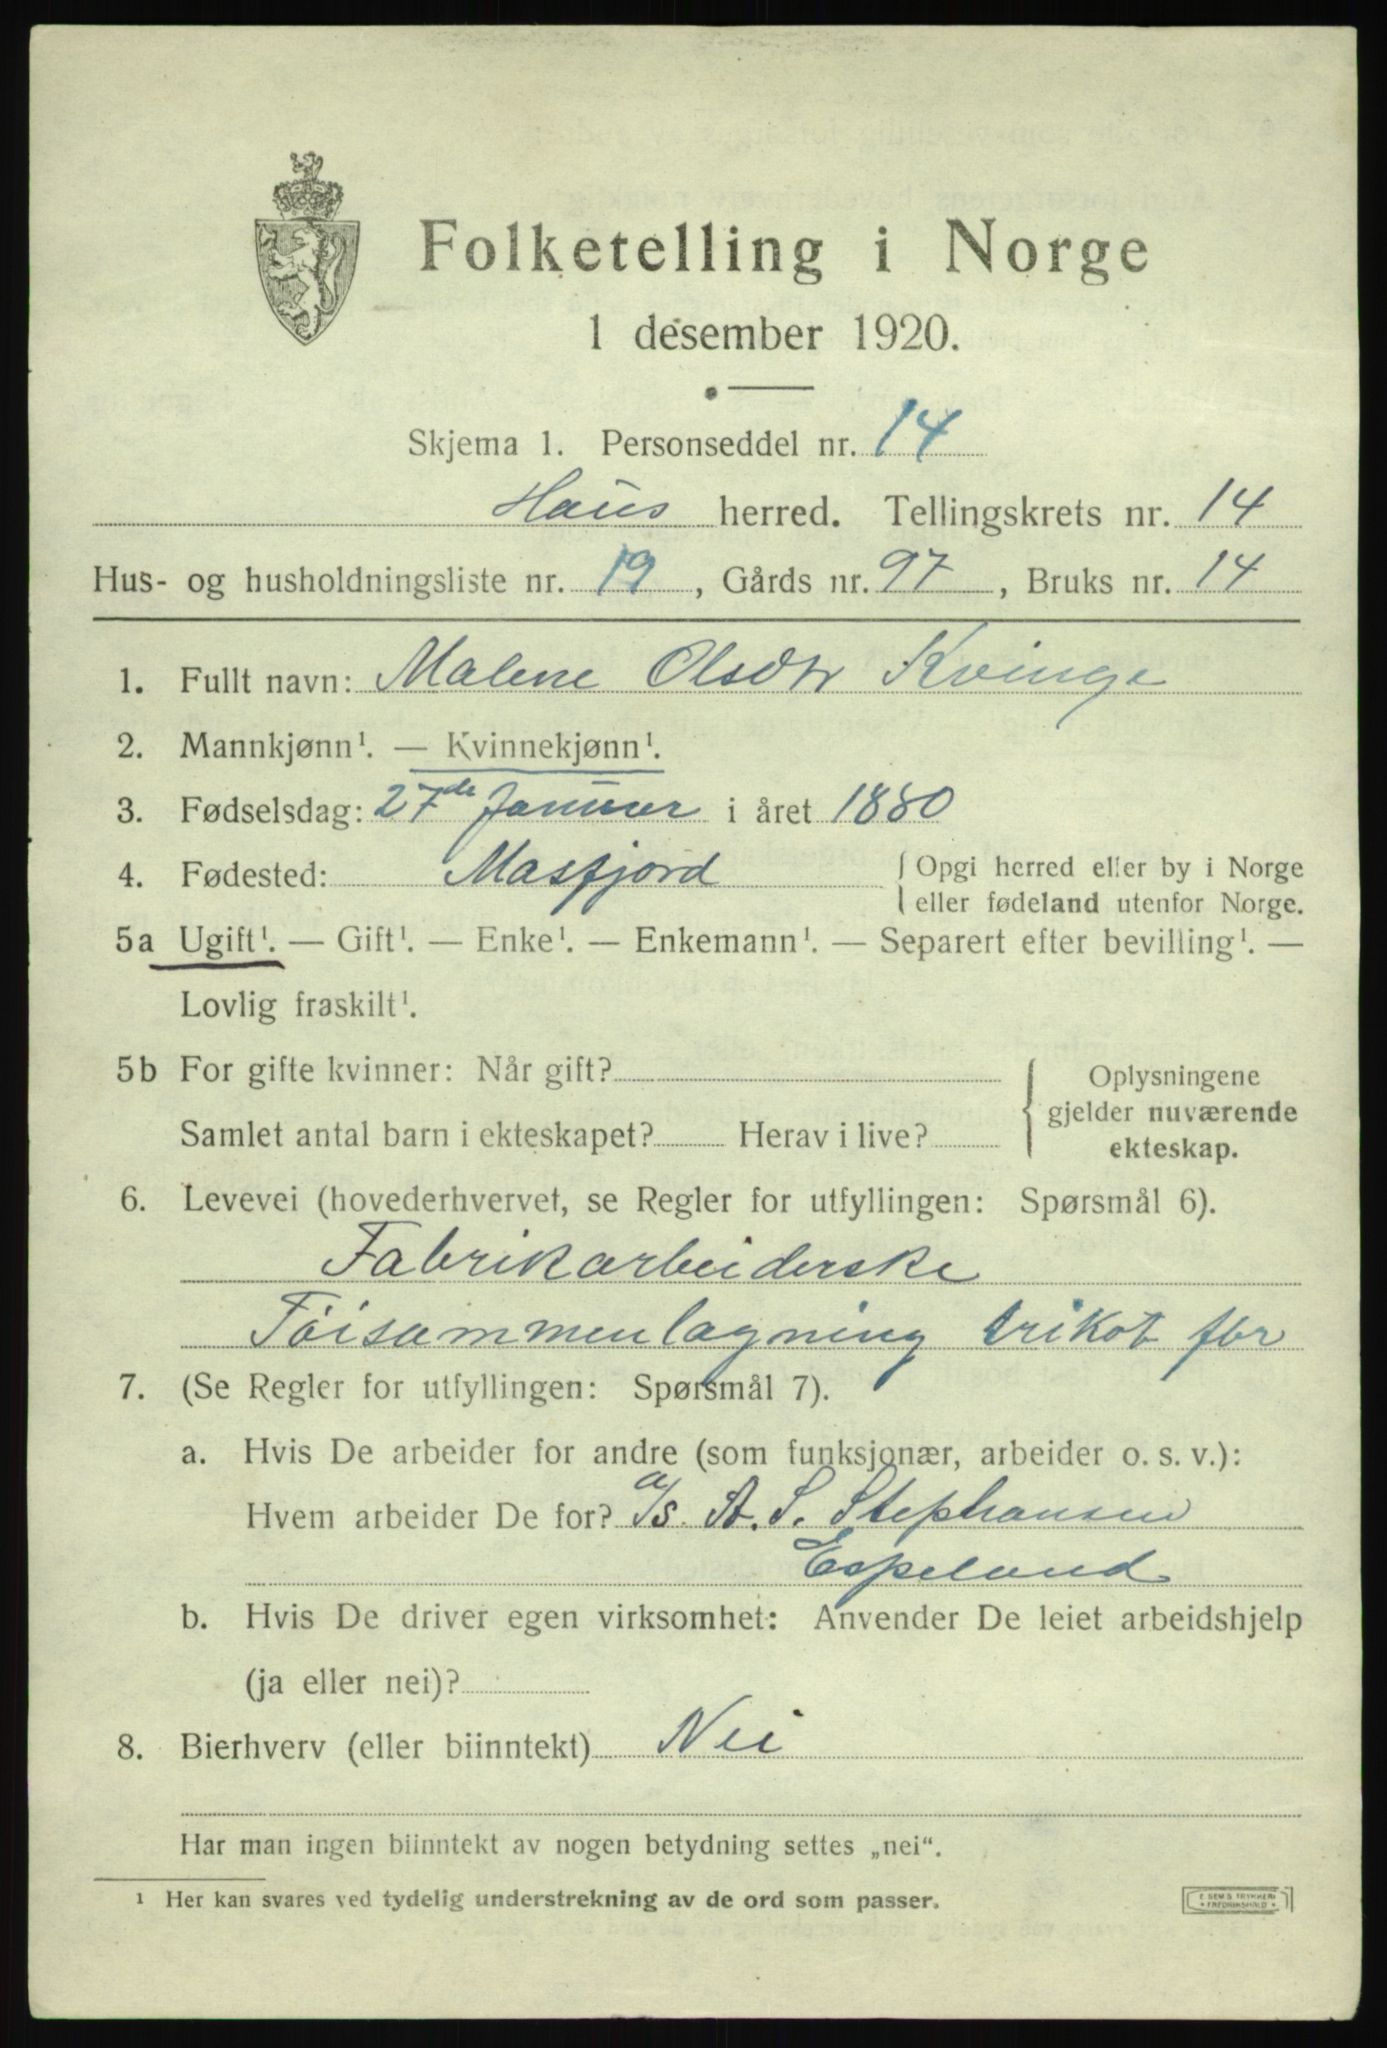 Folketelling i Norge
1 desember 1920.
Skjema 1. Personseddel nr. 14
Haus herred. Tellingskrets nr. 14
Hus- og husholdningsliste nr. 19, Gårds nr. 97, Bruks nr. 14
1. Fullt navn: Malene Olsdtr Kvinge
2. Mannkjønn¹. — Kvinnekjønn¹.
3. Fødselsdag: 27de Januar i året 1880
4. Fødested: Masfjord { Opgi herred eller by i Norge
eller fødeland utenfor Norge.
5a Ugift¹. — Gift¹. — Enke¹. — Enkemann¹. — Separert efter bevilling¹. —
Lovlig fraskilt¹.
5b For gifte kvinner: Når gift?
Samlet antal barn i ekteskapet? Herav i live?
{ Oplysningene
gjelder nuværende
ekteskap.
6. Levevei (hovederhvervet, se Regler for utfyllingen: Spørsmål 6).
Fabrikarbeiderske
Töisammenlagning trikot fbr
7. (Se Regler for utfyllingen: Spørsmål 7).
a. Hvis De arbeider for andre (som funksjonær, arbeider o. s. v.):
Hvem arbeider De for? a/s. A. S. Stephansen
Espeland
b. Hvis De driver egen virksomhet: Anvender De leiet arbeidshjelp
(ja eller nei)?
8. Bierhverv (eller biinntekt) Nei
Har man ingen biinntekt av nogen betydning settes „nei“.
¹ Her kan svares ved tydelig understrekning av de ord som passer.
E. SEMS TRYKKERI
• FREDRIKSHALD •